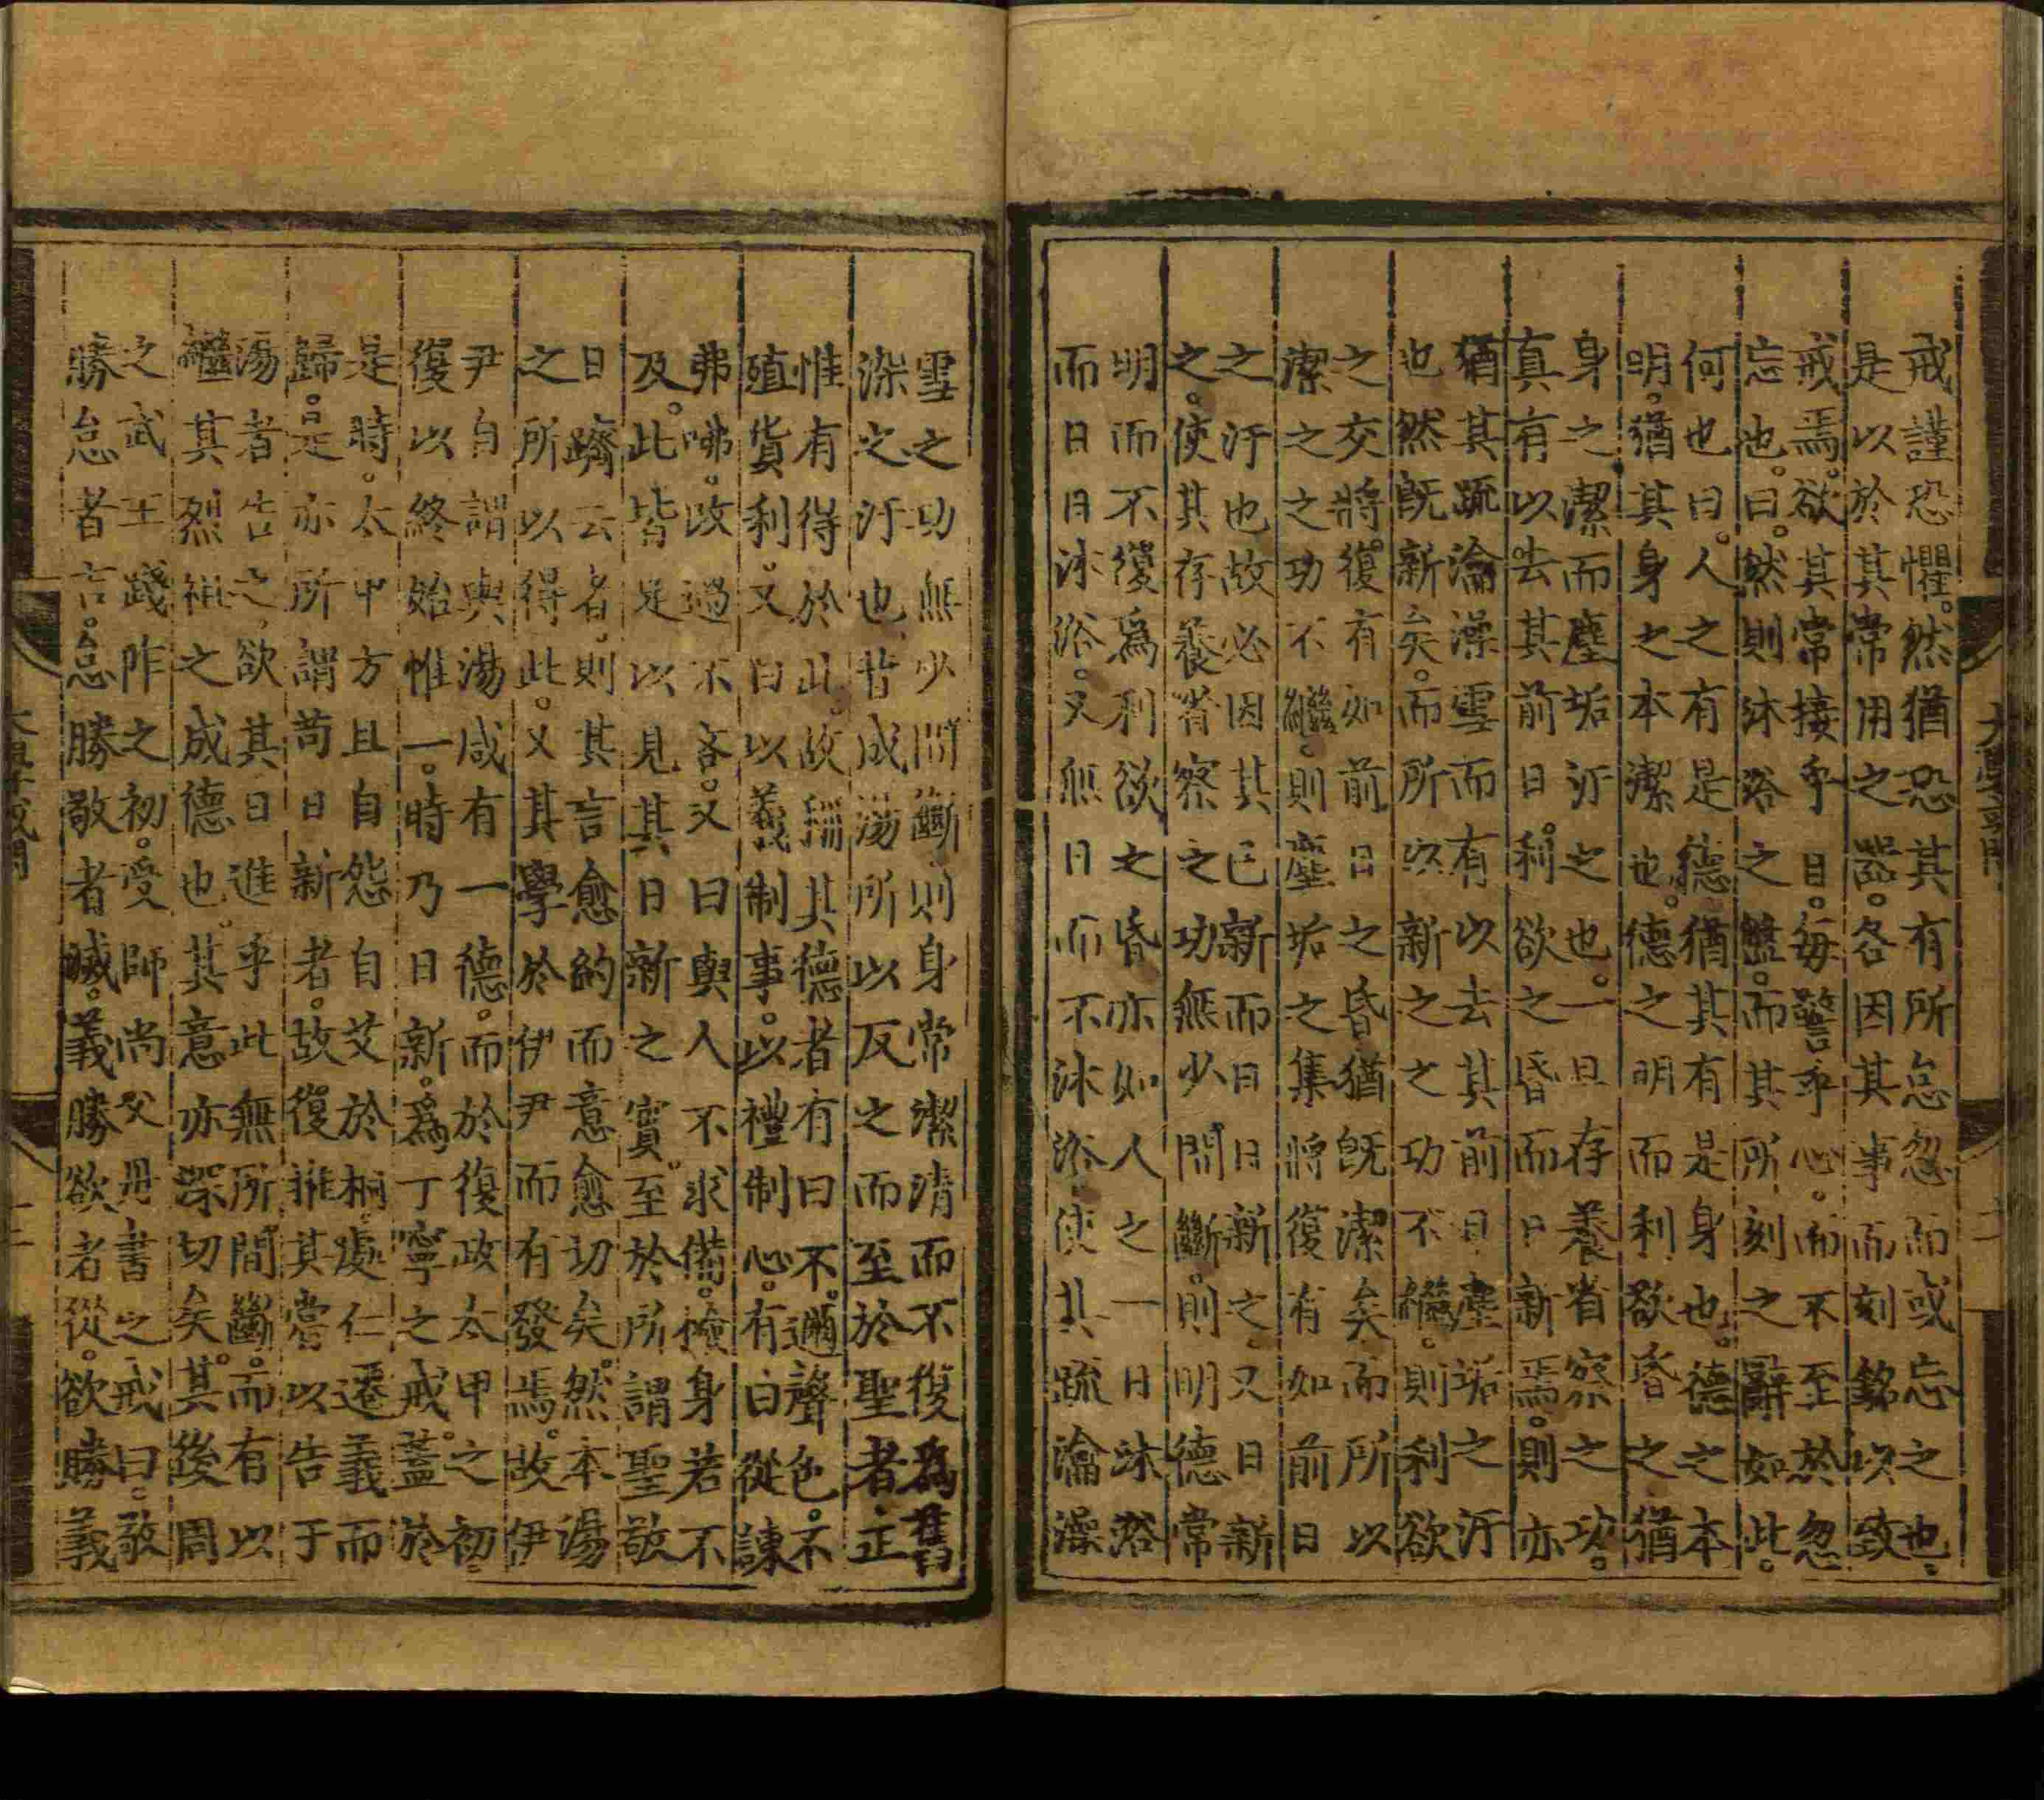 大學或問
戒謹恐懼。然猶恐其有所怠忽而或忘之也。
是以於其常用之器。各因其事而刻銘以致
戒焉。欲其常接乎目。每警乎心。而不至於忽
忘也。曰。然則沐浴之盤。而其所刻之辭如此。
何也曰。人之有是德。猶其有是身也。德之本
明。猶其身之本潔也。德之明而利欲昏之猶
身之潔而塵垢汙之也。一旦存養省察之功。
真有以去其前日利欲之昏而日新焉。則亦
猶其疏瀹澡雪而有以去其前日塵垢之汙
也然既新矣。而所以新之之功不繼。則利欲
之交將。復有如前日之昏猶既潔矣而所以
潔之之功不繼。則塵垢之集將復有如前日
之汙也故必因其已新而日日新之。又日新
之。使其存養省察之功無少間斷。則明德常
明而不復爲利欲之昏亦如人之一日沐浴
而日日沐浴。又無日而不沐浴使其疏瀹澡
雪之功無少間斷。則身常潔清而不復爲舊
染之汙也。昔成湯所以反之而至於聖者正
惟有得於此。故稱其德者有曰不邇聲色。不
殖貨利。又曰以義制事。以禮制心。有曰從諫
弗咈。改過不吝。又曰與人不求備。檢身若不
及。此皆足以見其日新之實。至於所謂聖敬
日躋云者。則其言愈約而意愈切矣。然本湯
之所以得此。又其學於伊尹而有發焉。故伊
尹自謂與湯咸有一德。而於復政太甲之初。
復以終始惟一。時乃日新。爲丁寧之戒。蓋於
是時。太甲方且自怨自艾於桐。處仁遷義而
歸。是亦所謂苟日新者。故復推其嘗以告于
湯者告之。欲其日進乎此無所間斷。而有以
繼其烈祖之成德也。其意亦深切矣。其後周
之武王踐阼之初。受師尚父丹書之戒曰。敬
勝怠者吉。怠勝敬者滅。義勝欲者從。欲勝義
大學或問